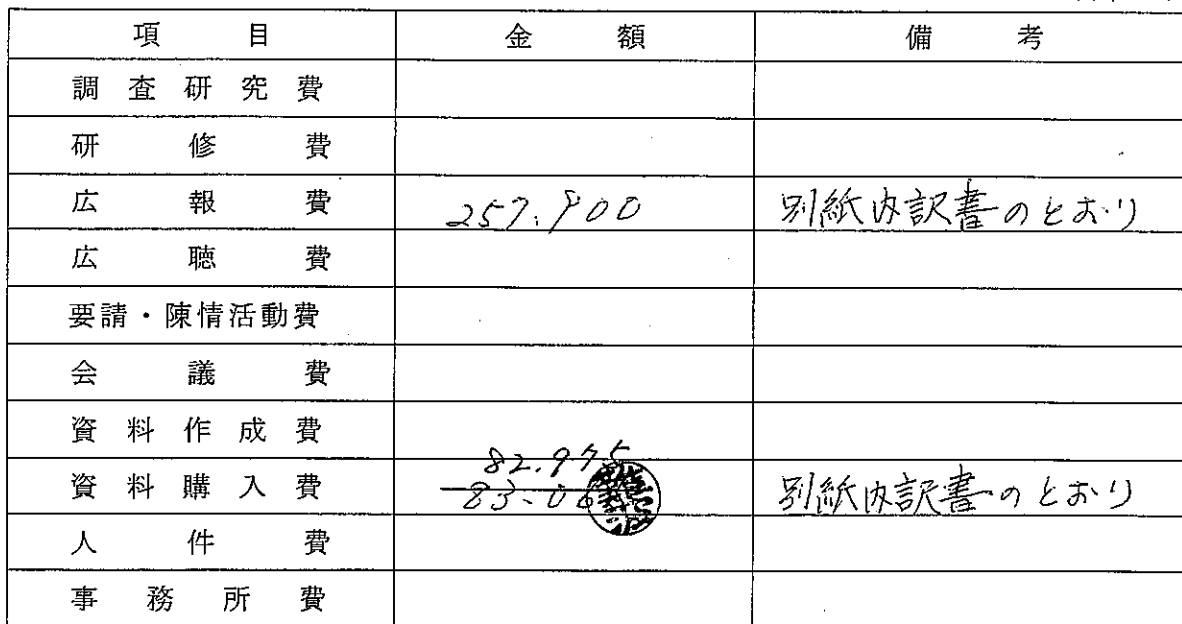 項目 金額 備考
調査研究費
研修費
広報費 257.900 別紙内訳書のとおり
広聴費
要請・陳情活動費
会議費
資料作成費
82.975
資料購入費 別紙内訳書のとおり
人件費
事務所費